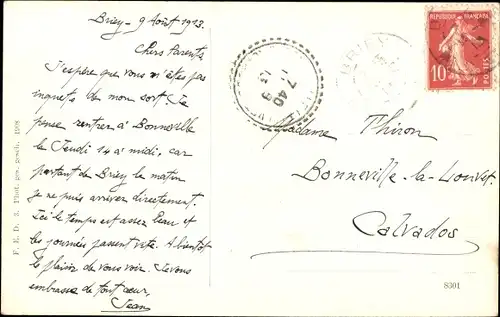 Briey - 9 Août 1913.
Chers Parents
J'espère que vous n'êtes pas
inquiets de mon sort Je
pense rentrer à Bonneville
le Jeudi 14 à midi, car
partant de Briey le matin
je ne puis arriver directement.
Ici le temps est assez beau et
les journées passent vite. A bientôt
le plaisir de vous voir. Je vous
embrasse de tout cœur,
Jean
Madame Thiron
Bonneville-la-Louvet
Calvados
REPUBLIQUE FRANÇAISE
10
POSTES
7 40
8301